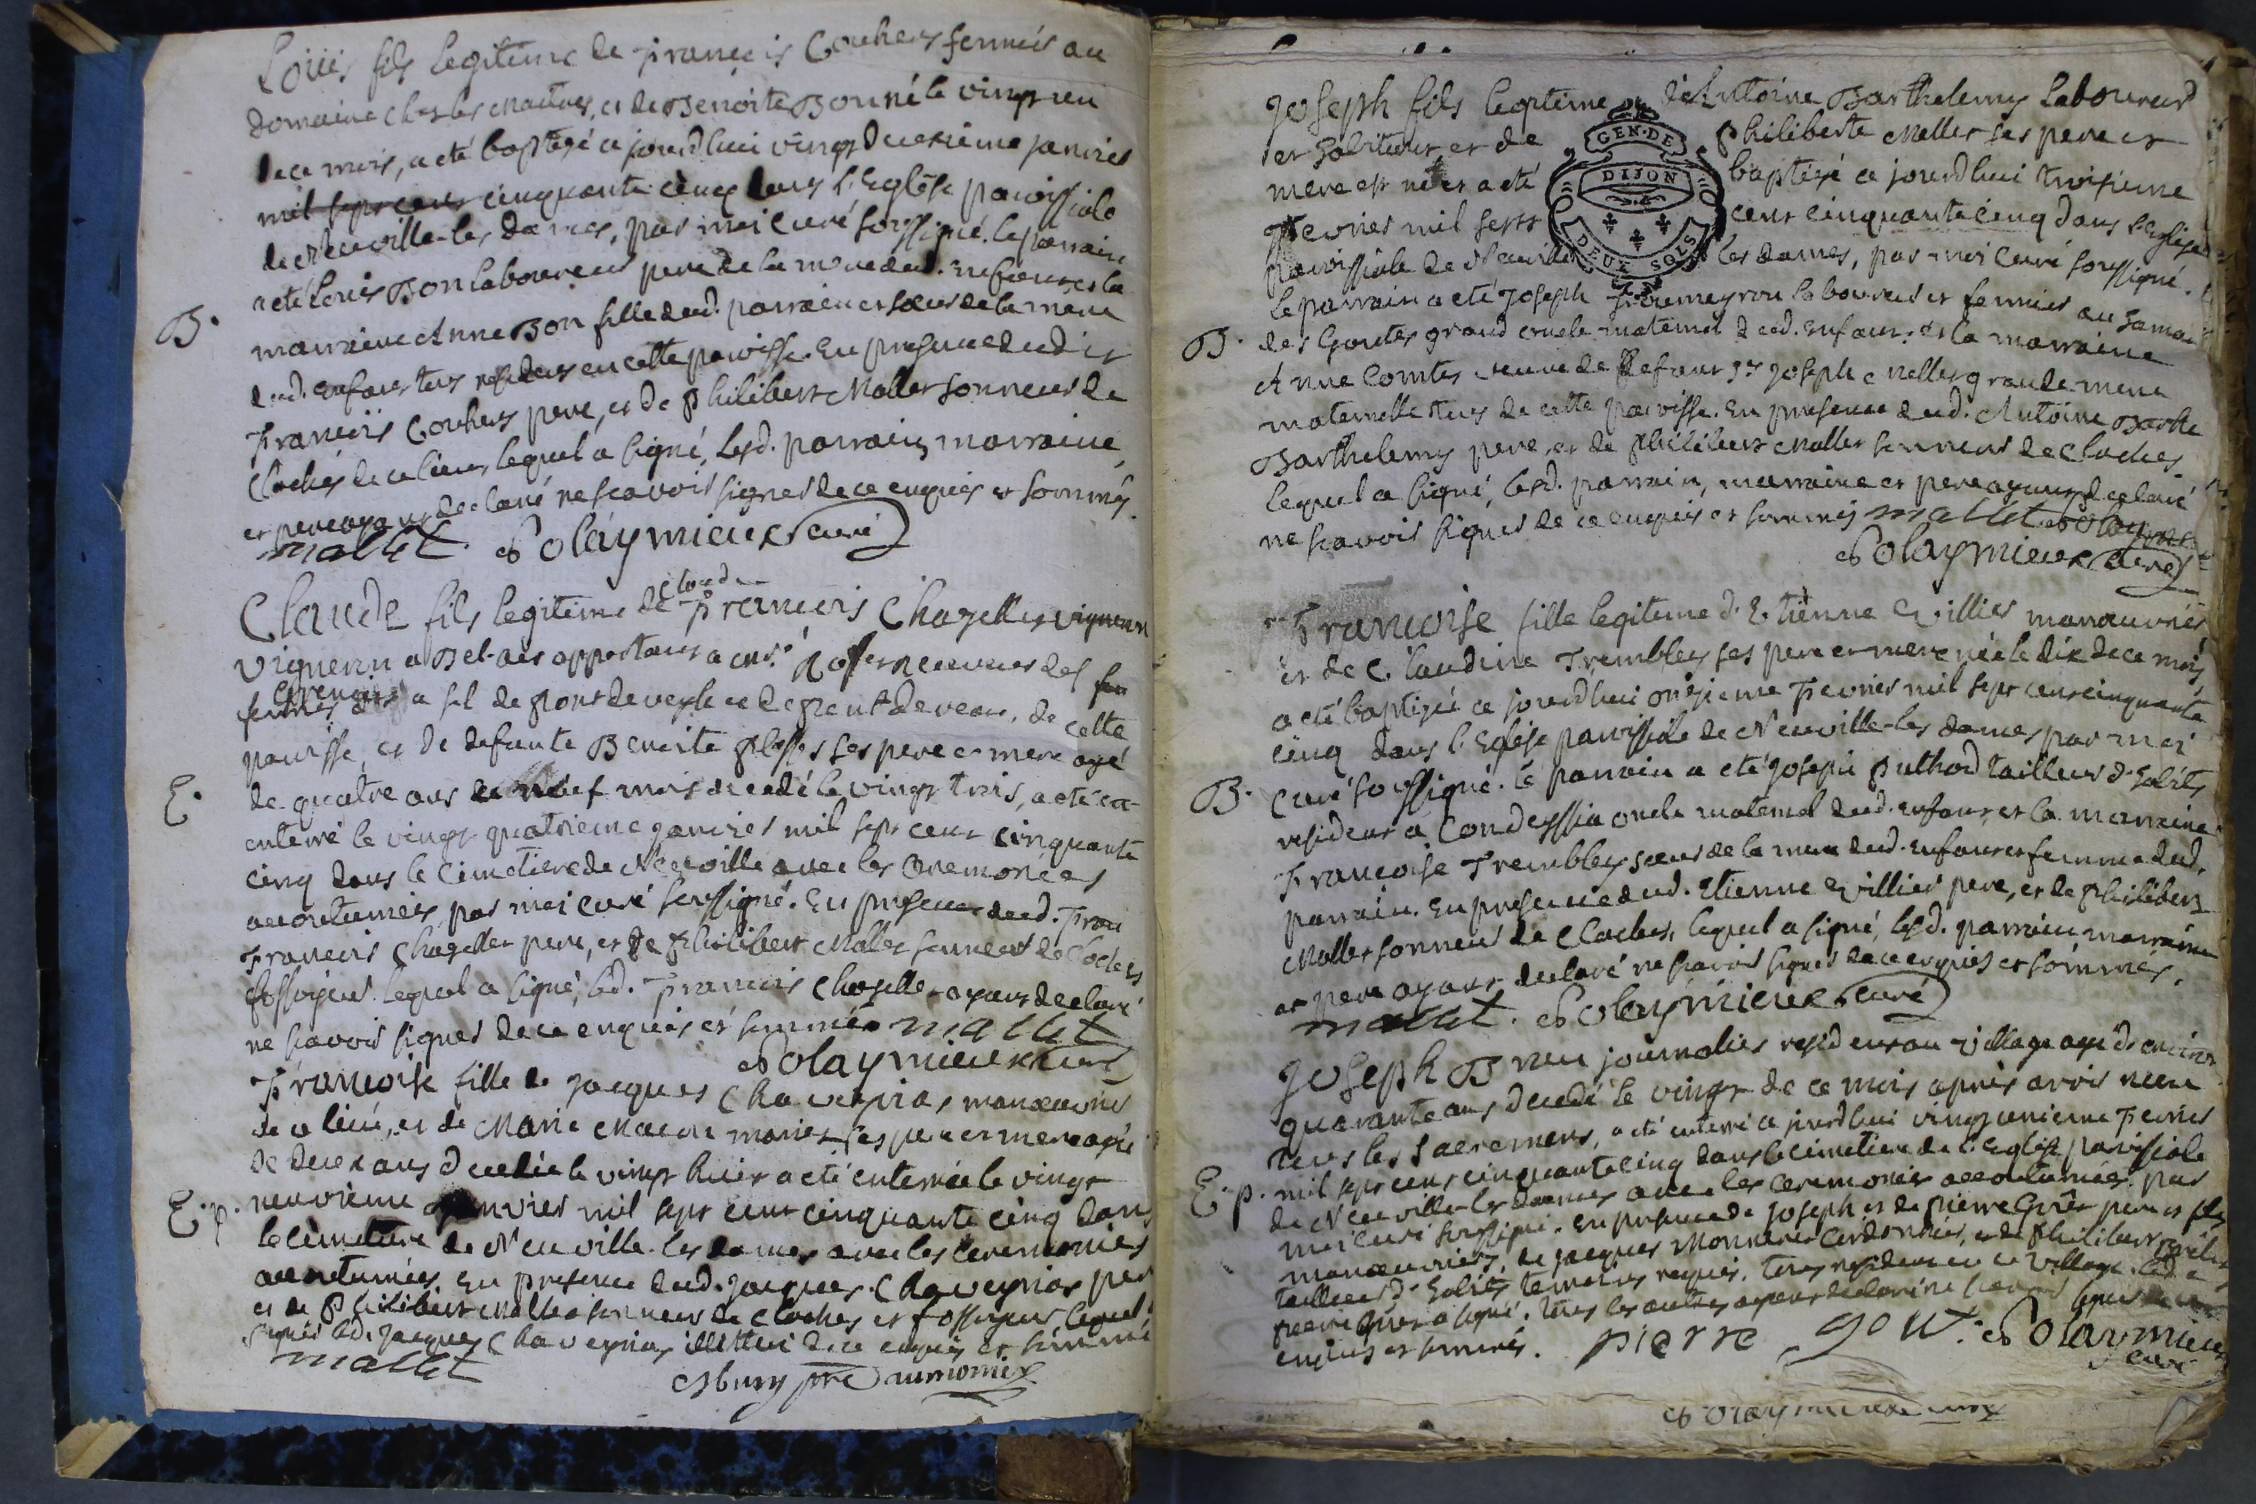 Loüis fils legitime de françois Couhers fermier au
domaine ches les Maitres, et de Benoite Bon né le vingt un
de ce mois, a eté baptizé ce jourdhui vingt deuxieme janvier
mil sept cent cinquante cinq dans l'Eglise paroissiale
de Neuville-les dames, par moi curé soussigné. le parrain
a eté Loüis Bon laboureur pere de la mere dud. enfant, et la
B.
marraine Anne Bon fille dud. parrain et sœur de la mere
dud. enfant tous residens en cette paroisse. En presence dud. et
François Couhers pere, et de Philibert Mallet sonneur de
Cloches de ce lieu, lequel a signé, lesd. parrain, marraine,
et pere ayant declaré ne scavoir signer de ce enquis et sommés.
mallet. Polaymieux curé
Claude fils legitime de Claud. François Chazelles vigneron
vigneron a Bel-air appartenant a
fermes a sel de Pont de vesle et de Pont de veaux, de cette
paroisse, et de defunte Benoite ses pere et mere agé
E.
de quatre ans et neuf mois decedé le vingt trois, a eté en-
enterré le vingt quatrieme janvier mil sept cent cinquante
cinq dans le Cimetiere de Neuville avec les Ceremonies
accoutumées, par moi curé soussigné. En presence dud. Fran
François Chazelles pere, et de Philibert Mallet sonneur de Cloches
fossoyeur. lequel a signé, led. François Chazelles ayant declaré
ne scavoir signer de ce enquis et sommé. mallet
Polaymieux curé
Françoise fille de Jacques Chaveyrias manœuvrier
de ce lieu, et de Marie mariés ses pere et mere agée
de deux ans decedée le vingt huit a eté enterrée le vingt
E. p.
neuvieme janvier mil sept cent cinquante cinq dans
le cimetiere de Neuville-les dames avec les ceremonies
accoutumées, En presence dud. Jacques Chaveyrias pere
et de Philibert Mallet sonneur de Cloches et fossoyeur, lequel
signé led. Jacques Chaveyrias illitteré de ce enquis et sommé
mallet
pre aumonier
Joseph fils legitime d'Antoine Barthelemy laboureur
et habitant et de Philiberte Mallet ses pere et
mere est né et a eté baptizé ce jourdhui troisieme
Fevrier mil sept cent cinquante cinq dans l'Eglise
paroissiale de Neuville les dames, par moi curé soussigné.
GEN. DE
DIJON
DEUX SOLS
le parrain a eté Joseph laboureur et fermier au
B.
des Goutes grand oncle maternel dud. enfant. et la marraine
Anne Comtet veuve de defunt Joseph Mallet grande mere
maternelle tous de cette paroisse. En presence dud. Antoine Barthe
Barthelemy pere, et de Philibert Mallet sonneur de Cloches
lequel a signé, lesd. parrain, marraine et pere ayant declaré
ne scavoir signer de ce enquis et sommés mallet
Polaymieux curé
Françoise fille legitime d'Etienne Evillier manœuvrier
et de Claudine Tremblay ses pere et mere née le dix de ce mois
a eté baptizée ce jourdhui onzieme Fevrier mil sept cent cinquante
cinq dans l'Eglise paroissiale de Neuville-les dames par moi
B.
curé soussigné. le parrain a eté Joseph Puthod tailleur d'habits
resident a Condeyssia oncle maternel dud. enfant, et la marraine
Françoise Tremblay sœur de la mere dud. enfant et femme dud.
parrain. En presence dud. Etienne Evillier pere, et de Philibert
Mallet sonneur de Cloches, lequel a signé, lesd. parrain marraine
et pere ayant declaré ne scavoir signer de ce enquis et sommés.
mallet. Polaymieux curé
Joseph Breu journalier resident au village agé d'environ
quarante ans decedé le vingt de ce mois apres avoir recu
tous les Sacremens, a eté enterré ce jourdhui vingt unieme Fevrier
E. p.
mil sept cent cinquante cinq dans le cimetiere de l'Eglise paroissiale
de Neuville-les dames avec les ceremonies accoutumées, par
moi curé soussigné. En presence de Joseph et de Pierre pere et fils
manœuvriers, de Jacques Monnier Cordonnier, et de Philibert
tailleur d'habits temoins requis, tous residens en ce village. led.
Pierre a signé. tous les autres ayant declaré ne scavoir signer de ce
enquis et sommés. pierre Polaymieux
curé
Polaymieux curé